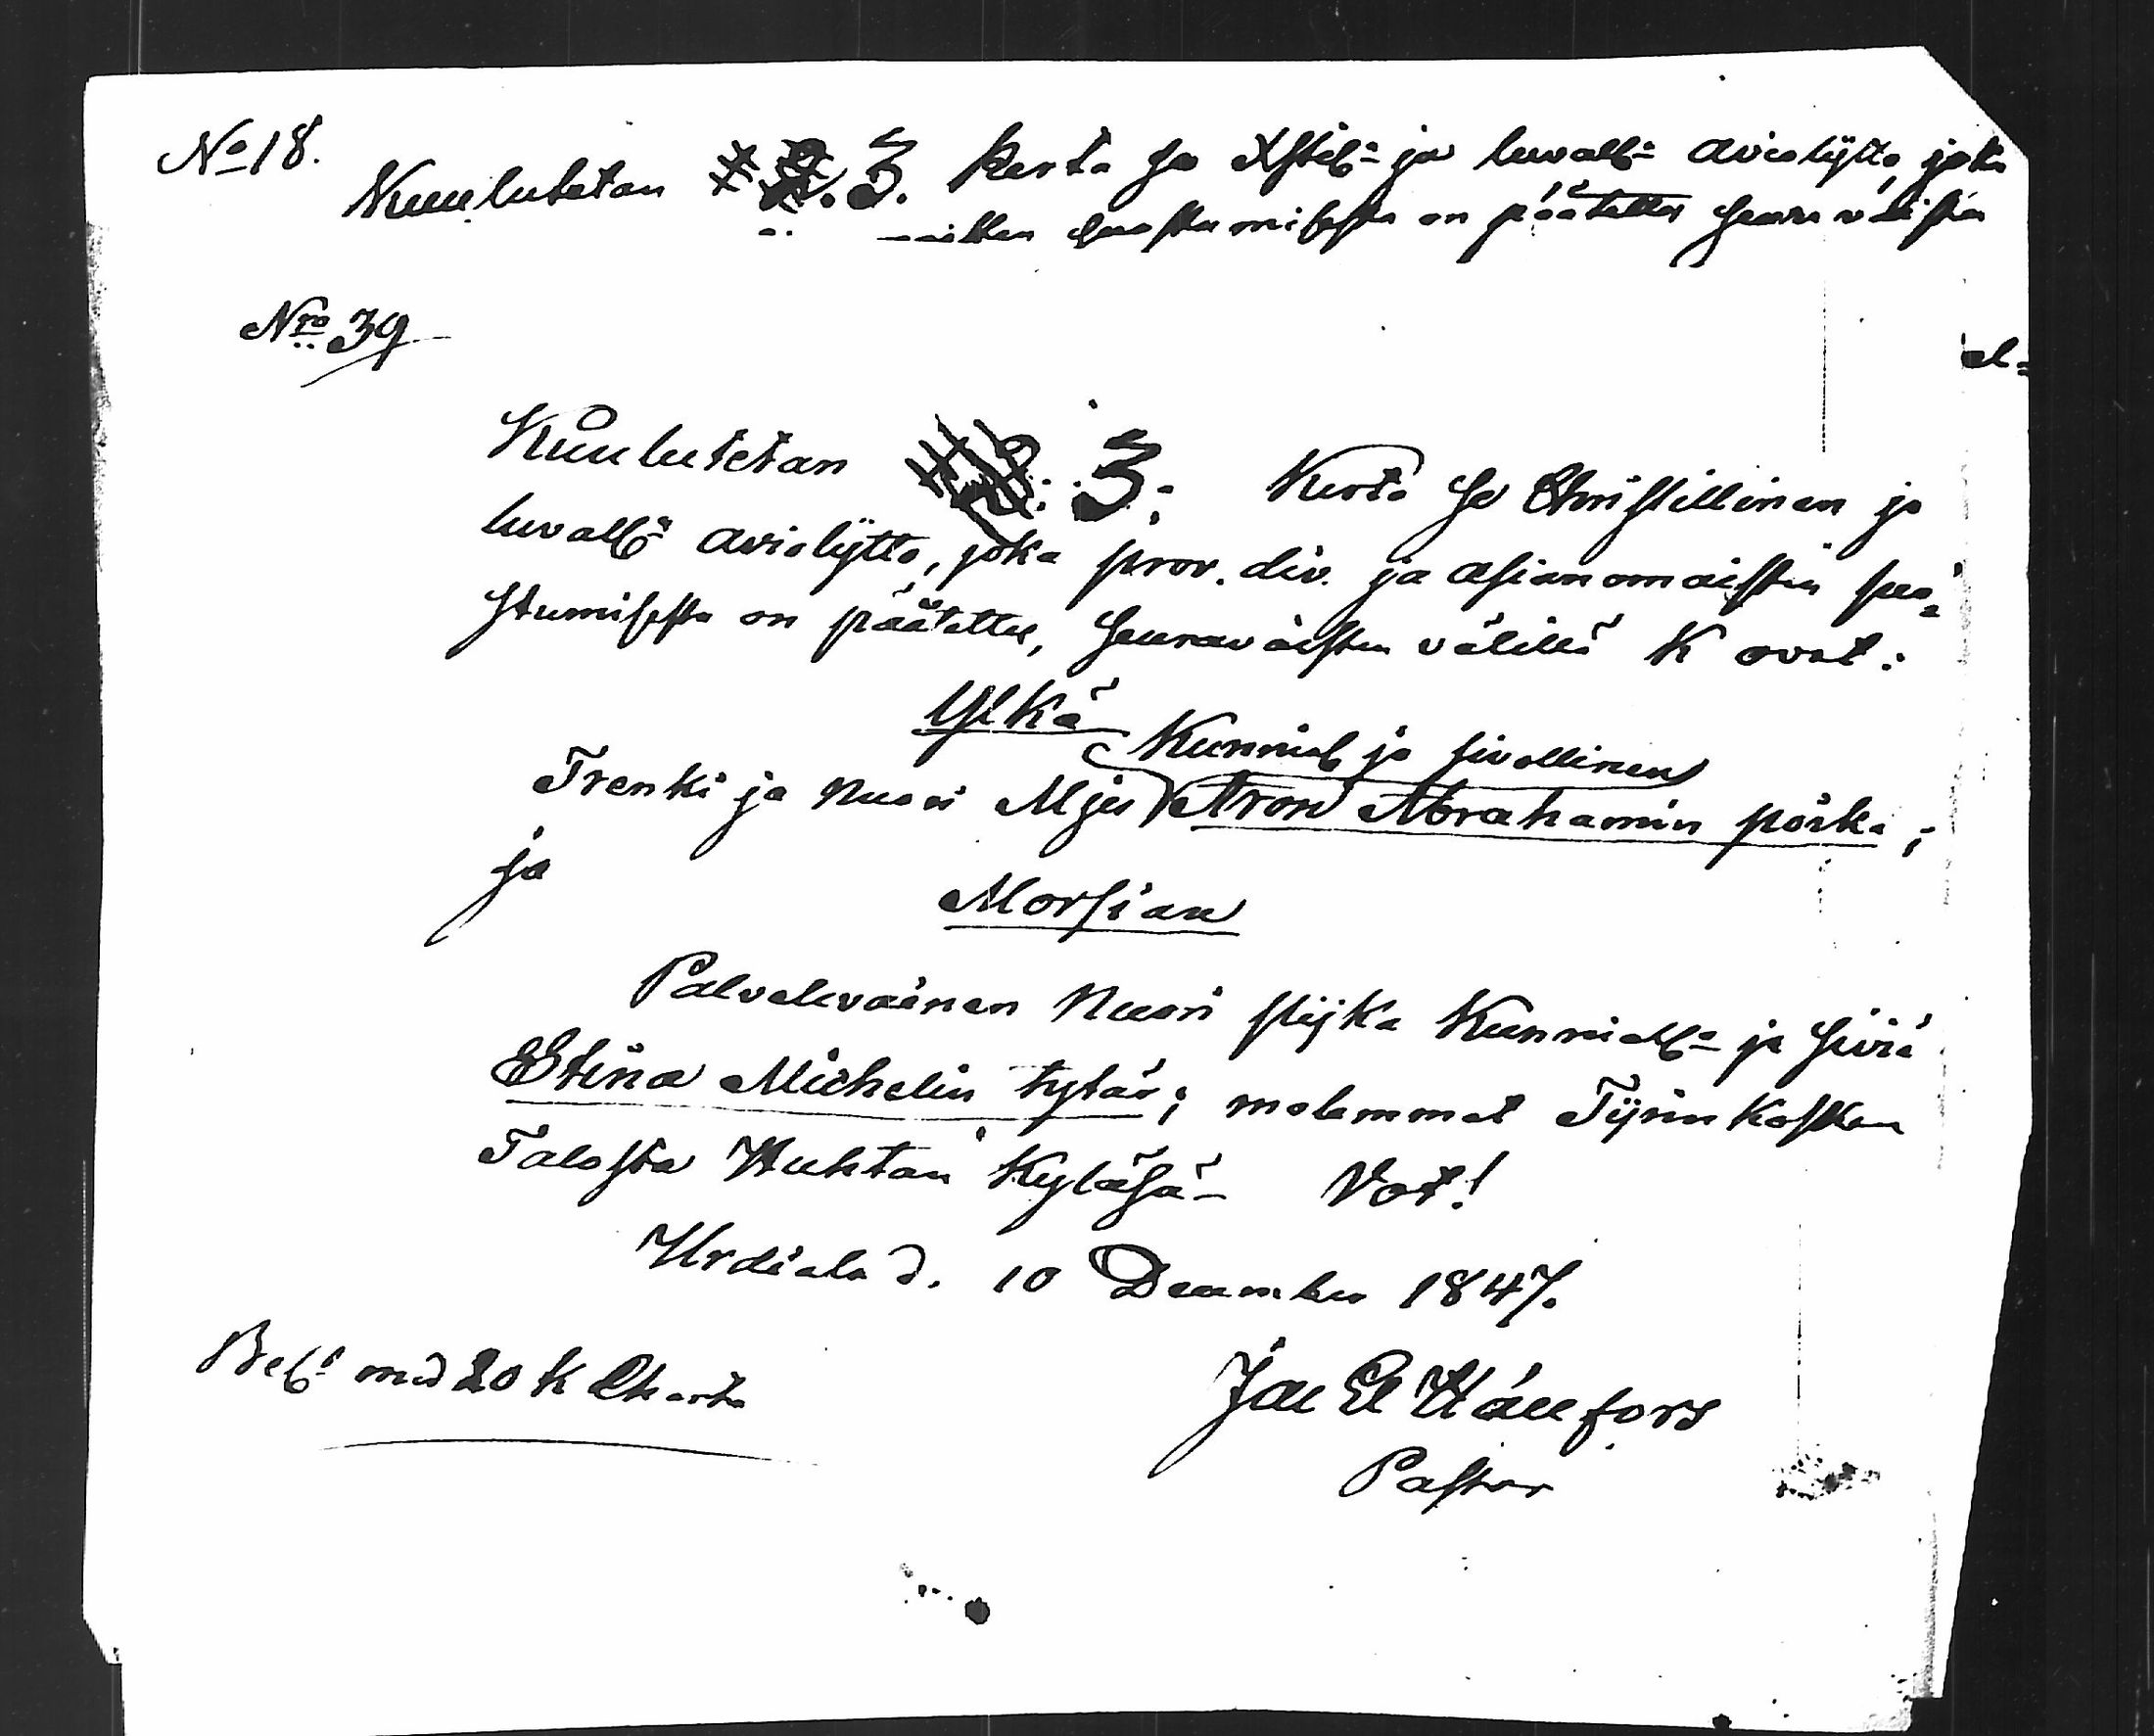 No 18.
Kuulutetan 3. kerta se Xstil:n ja luvall:n aviolijtto, joka
suostumisesta on päätetty seuravaisten
Nro 39
Kuulutetan 3: Kerta se Christillinen ja
luvall:n aviolijtto, joka prov. div. ja asianomaisten suo=
stumisesta on päätetty, seuravaisten välillä K ovat:
Ylkä
Kunniall ja sivellinen
Trenki ja Nuori Mjes Aron Abrahamin poika;
ja
Morsian
Palvelevainen Nuori pijka Kunniall:n ja siviä
Stina Michelin tytär; molemmat Tyrinkosken
Talosta Huhtan Kyläsä – Vot!
Urdiala d. 10 December 1847.
Bel:s med 20 K Charta
Jac El Hällfors
Pastor